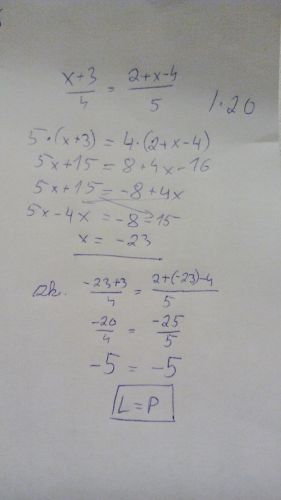 x+3/4 = 2+x-4/5 /·20
5·(x+3) = 4·(2+x-4)
5x+15 = 8+4x-16
5x+15 = -8+4x
5x-4x = -8-15
x = -23
zk. -23+3/4 = 2+(-23)-4/5
-20/4 = -25/5
-5 = -5
L=P